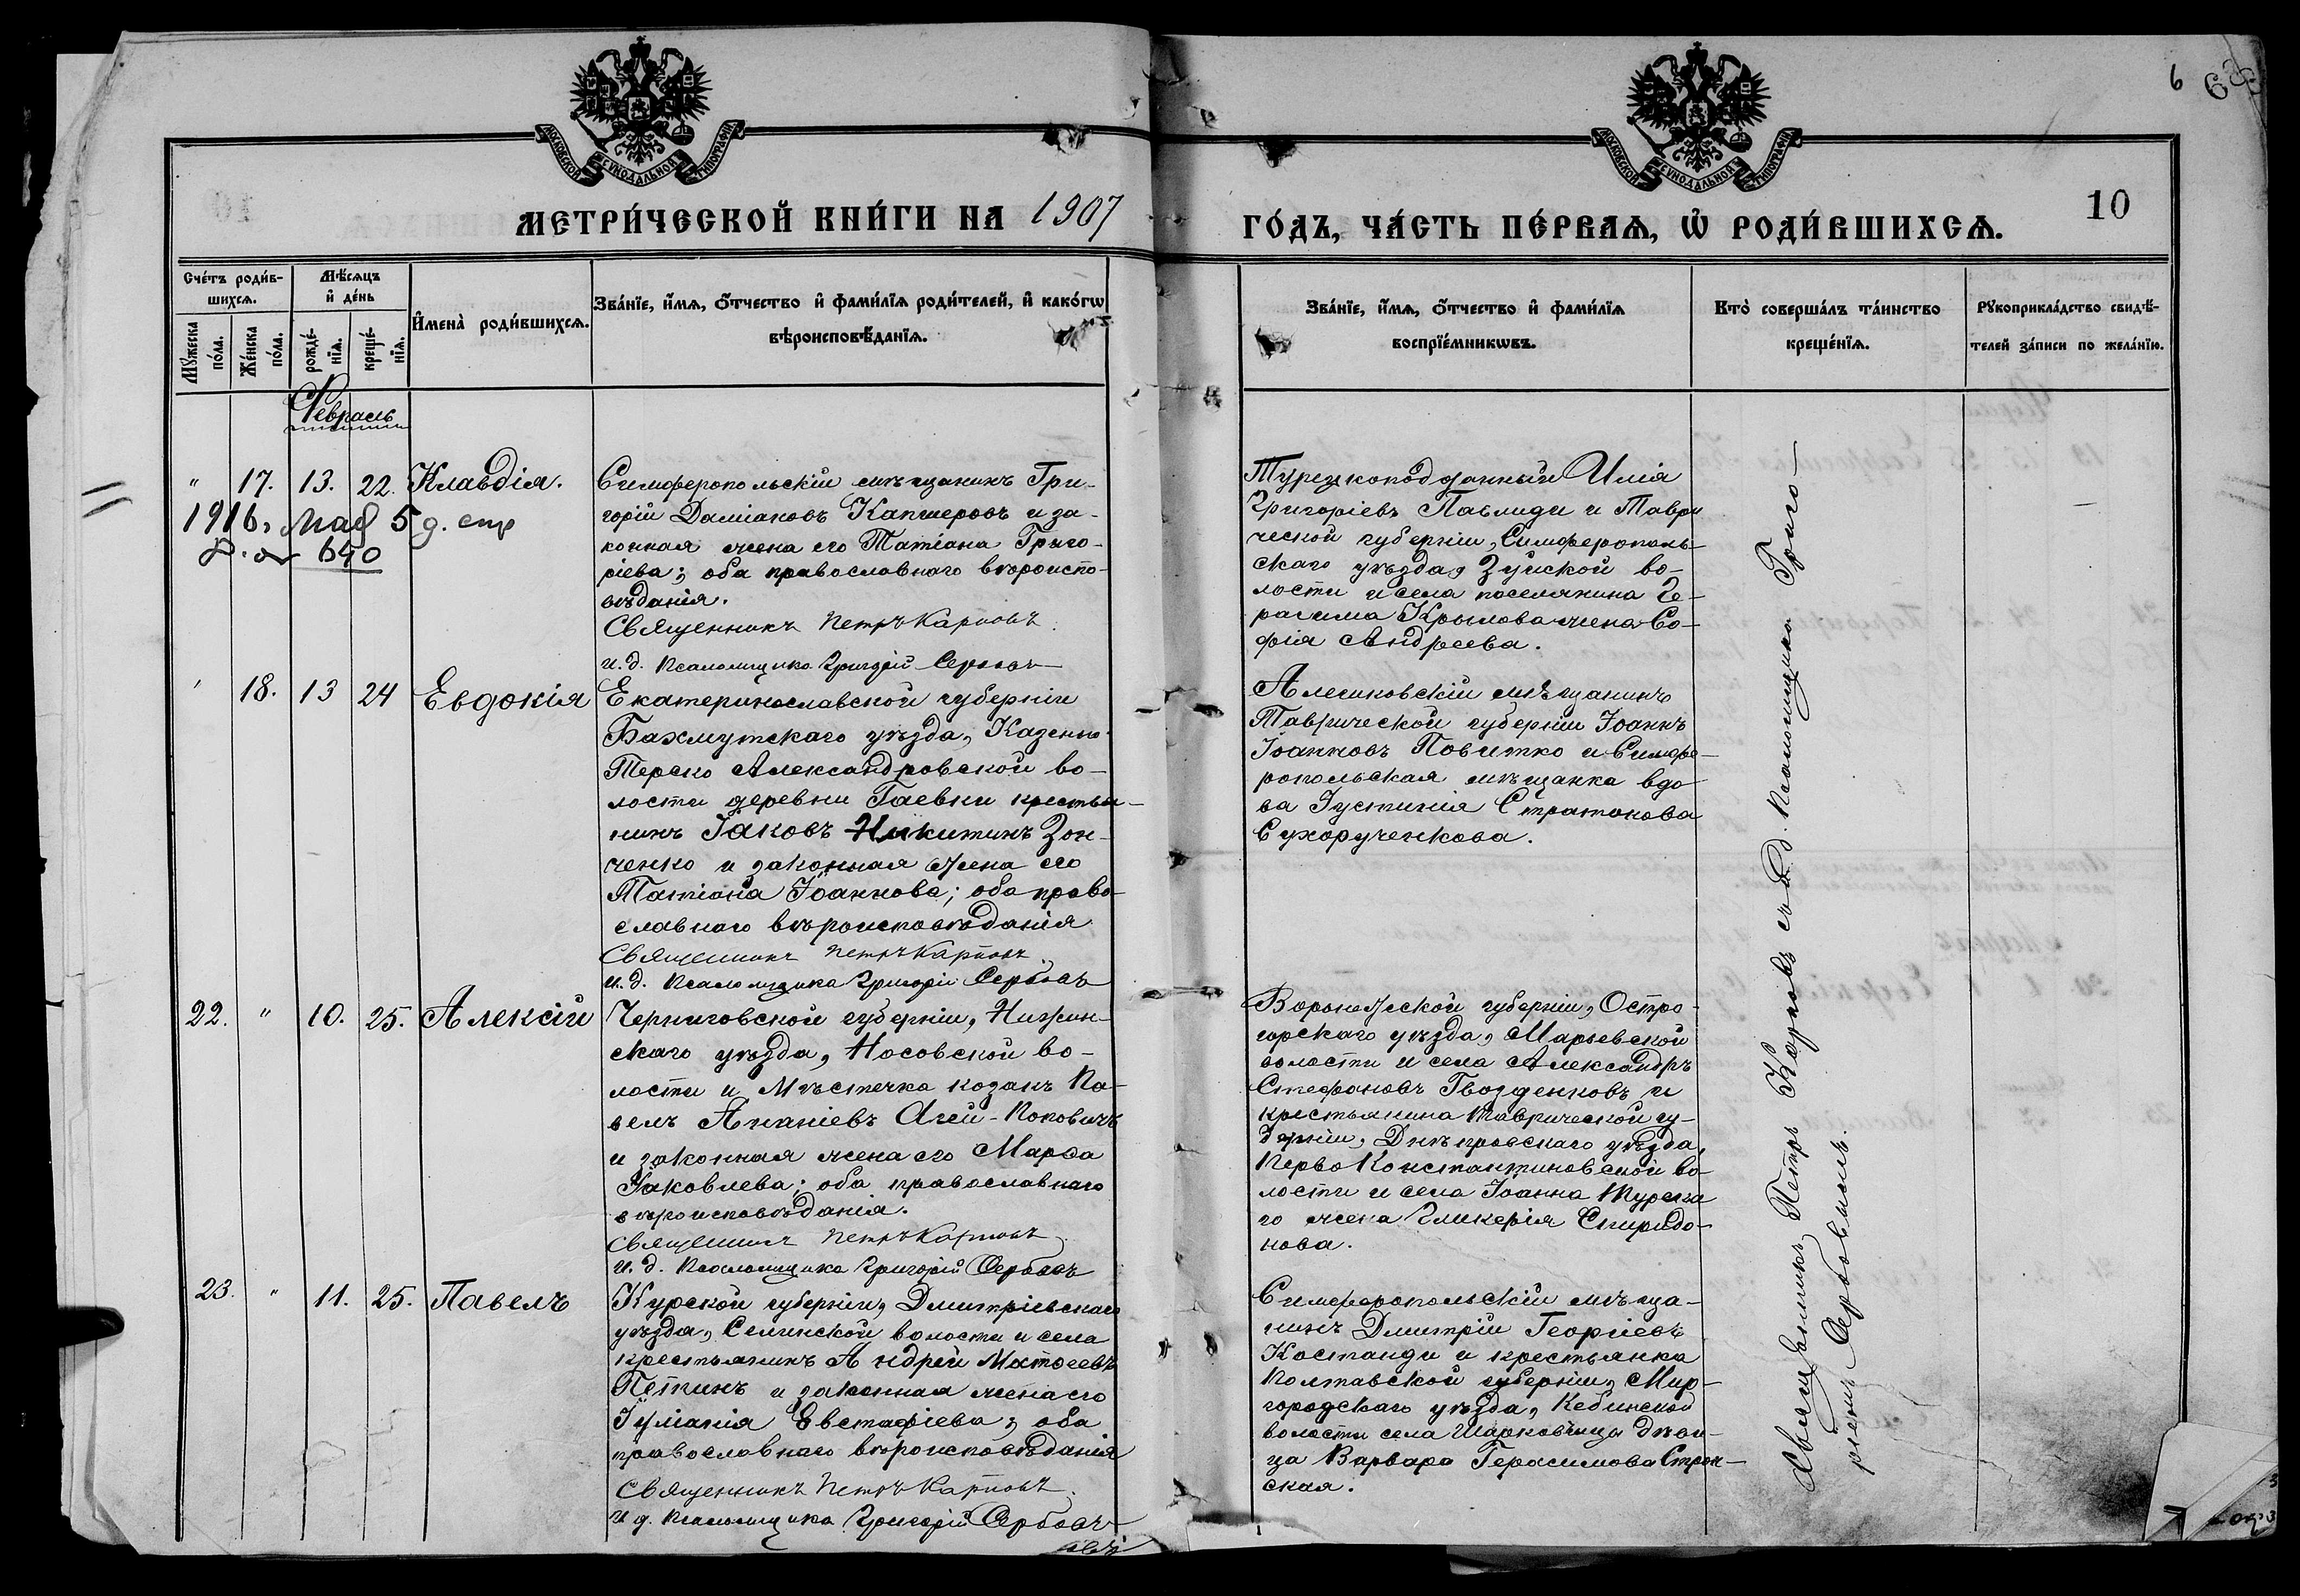 МОСКОВСКОЙ СѴНОДАЛЬНОЙ ТИПОГРАФІИ
МОСКОВСКОЙ СѴНОДАЛЬНОЙ ТИПОГРАФІИ
6
10
МЕТРИ́ЧЕСКОЙ КНИ́ГИ НА 1907
ГО́ДЪ, ЧА́СТЬ ПЕ́РВАѦ, Ѡ҆ РОДИ́ВШИХСѦ.
Сче́тъ роди́в-
шихсѧ.
Мѣ́сѧцъ
и҆ де́нь
Мꙋ́жеска
по́ла.
Же́нска
по́ла.
рожде́-
нїѧ.
креще́-
нїѧ.
И҆мена̀ роди́вшихсѧ.
Зва́нїе, и҆́мѧ, ѻ҆́тчество и҆ фами́лїѧ роди́телей, и҆ како́гѡ
вѣроисповѣ́данїѧ.
Зва́нїе, и҆́мѧ, ѻ҆́тчество и҆ фами́лїѧ
воспрїе́мникѡвъ.
Кто̀ соверша́лъ та́инство
креще́нїѧ.
Рꙋкоприкла́дство свидѣ́-
телей за́писи по жела́нїю.
Февраль
" 17. 13. 22. Клавдія.
Симферопольскій мѣщанинъ Гри-
горій Даміановъ Капшеровъ и за-
конная жена его Татіана Григо-
ріева; оба православнаго вѣроиспо-
вѣданія.
Священникъ Петръ Карповъ.
и. д. Псаломщика Григорій Сербовъ
1916 г. Мая 5 д.
640
Турецкоподданный Илія
Григоріевъ Павлиди и Таври
ческой губерніи, Симферополь-
скаго уѣзда, Зуйской во-
лости и села поселянина Ге-
расима Крылова жена Со-
фія Андреева.
18. 13 24 Евдокія
Екатеринославской губерніи
Бахмутскаго уѣзда, Казенно-
Терско Александровской во-
лости деревни Гаевки крестья-
нинъ Іаковъ Никитинъ Зон-
ченко и законная жена его
Татіана Іоаннова; оба право-
славнаго вѣроисповѣданія
Священникъ Петръ Карповъ.
и. д. Псаломщика Григорій Сербовъ
Алешковскій мѣщанинъ
Таврической губерніи Іоаннъ
Іоанновъ Повитко и Симфе-
ропольская мѣщанка вдо
ва Іустинія Стратонова
Сухорученкова.
22. " 10. 25. Алексій
Черниговской губерніи, Нижин-
скаго уѣзда, Носовской во-
лости и мѣстечка козакъ Па-
велъ Ананіевъ Агей-Поповичъ
и законная жена его Марѳа
Іаковлева; оба православнаго
вѣроисповѣданія.
Священникъ Петръ Карповъ.
И. д. Псаломщика Григорій Сербовъ
Воронежской губерніи, Остро-
горскаго уѣзда, Марьевской
волости и села Александръ
Стефановъ Гвозденковъ и
крестьянина Таврической гу-
берніи, Днѣпровскаго уѣзда,
Перво Константиновской во-
лости и села Іоанна
го жена Гликерія Спиридо-
нова.
23. " 11. 25. Павелъ
Курской губерніи, Дмитріевскаго
уѣзда, Селинской волости и села
крестьянинъ Андрей Матѳеевъ
Петинъ и законная жена его
Іуліанія Евстафіева; оба
православнаго вѣроисповѣданія
Священникъ Петръ Карповъ.
И д. Псаломщика Григорій Сербовъ
Симферопольскій мѣща-
нинъ Дмитрій Георгіевъ
Костанди и крестьянка
Полтавской губерніи, Мир-
городскаго уѣзда, Кебинской
волости села Шарковщины дѣви-
ца Варвара Герасимова Строн-
ская.
Священникъ Петръ Карповъ съ и. д. Псаломщика Григо-
ріемъ Сербовымъ.